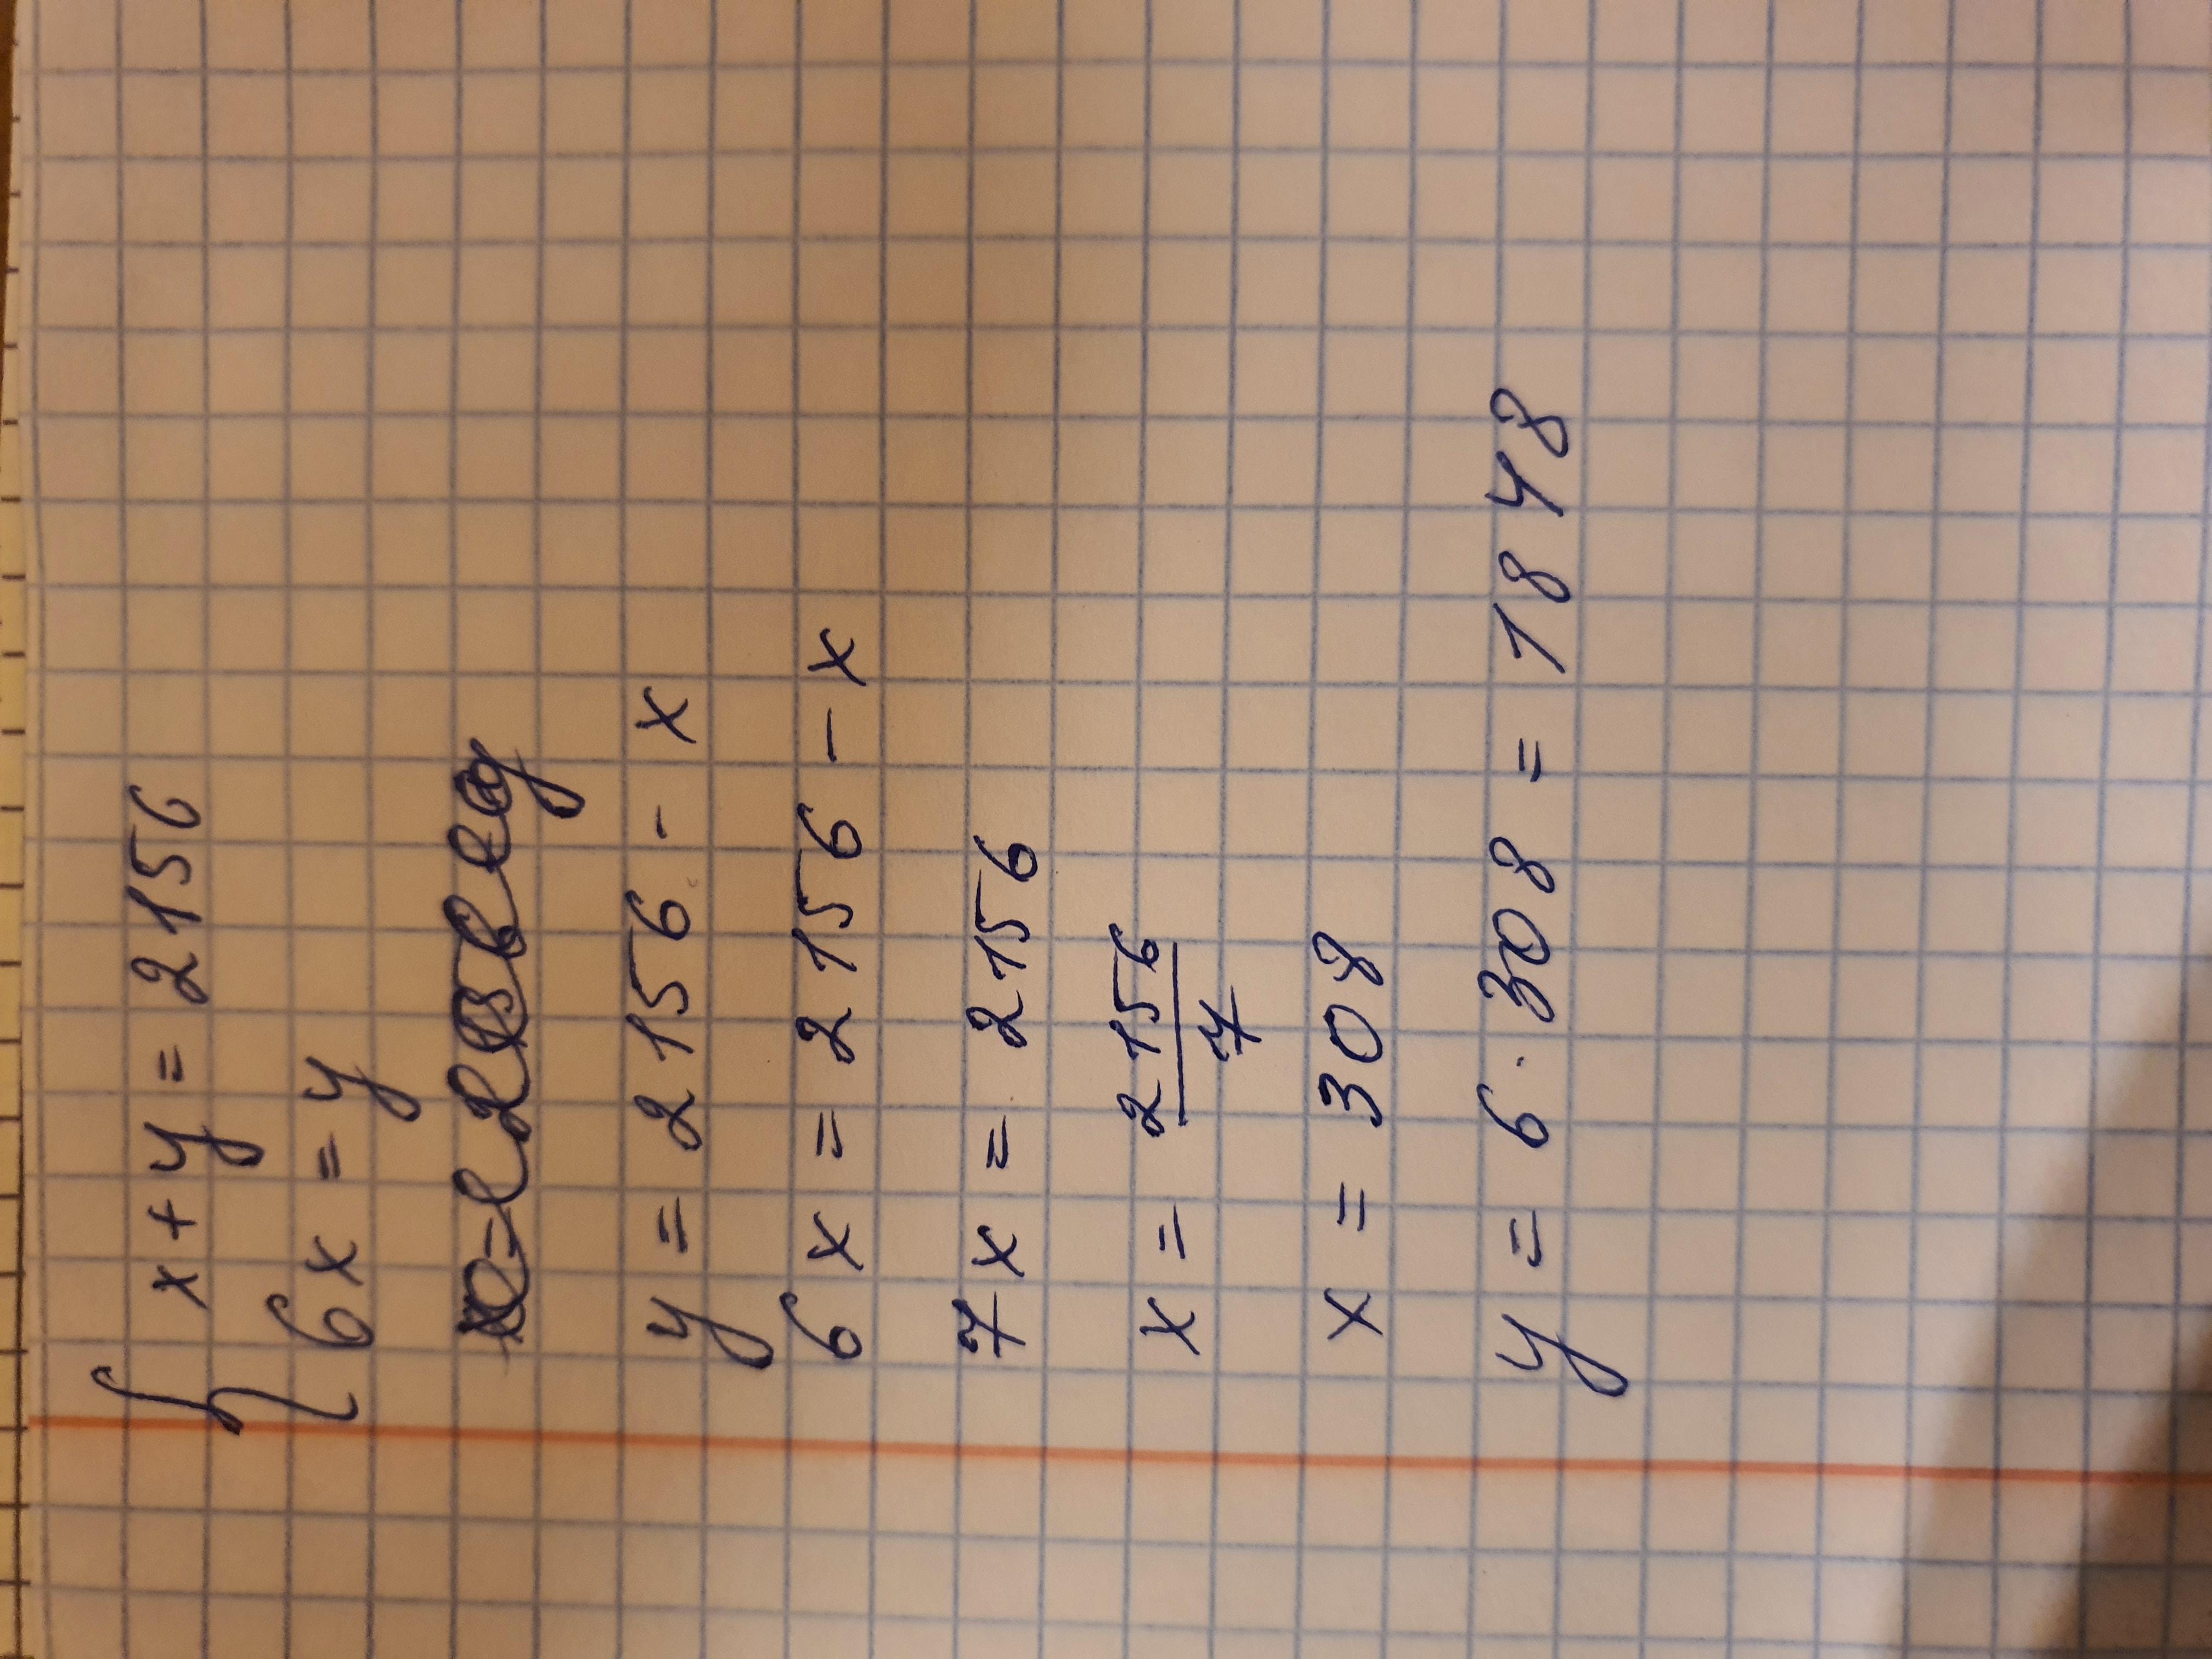 x + y = 2156
6x = y
y = 2156 - x
6x = 2156 - x
7x = 2156
x = 2156/7
x = 308
y = 6 · 308 = 1848